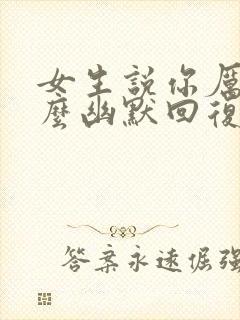 女生說你厲
麼幽默回復
答案永遠倔強